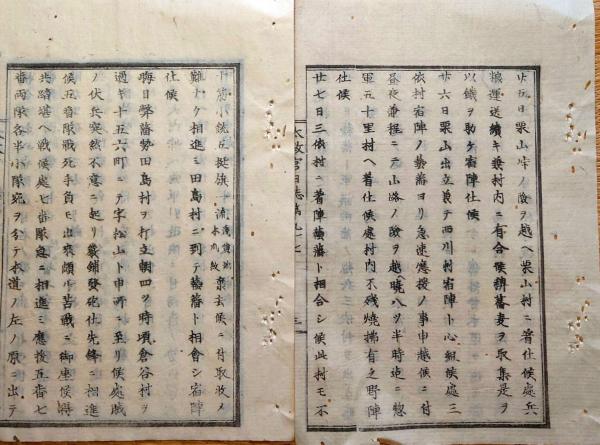 廿五日栗山峠ノ險ヲ越ヘ栗山村ニ着仕候處兵
粮運送續キ兼村内ニ有合候稗蕎麦ヲ取集是ヲ
以餓ヲ助ケ宿陣仕候
廿六日栗山出立兼テ西川村宿陣ト心組候處三
依村宿陣ノ藝藩ヨリ急速應援ノ事申越候ニ付
昼夜兼程ニテ山路ノ險ヲ越曉八ツ半時迄ニ惣
軍五十里村ヘ着仕候處村内不残燒拂有之野陣
仕候
廿七日三依村ニ着陣藝藩ト相合シ候此村モ不
太政官日誌第九十七
三
小銃五挺旗一流棄去候ニ付取收メ
難ナク相進ミ田島村ニ到テ藝藩ト相會シ宿陣
仕候
晦日弊藩勢田島村ヲ打立朝四ツ時頃倉谷村ヲ
過キ十五六町ニテ字松山ト申所ニ至リ候處賊
ノ伏兵突然不意ニ起リ發砲仕先鋒ニ相進
候五番隊戰死手負モ出来頗ル苦戰ニ御座候得
共踏堪ヘ戰候處七番隊急ニ相進ミ應援五番七
番兩隊各半小隊宛ヲ分テ本道ノ左ノ原ニ出テ